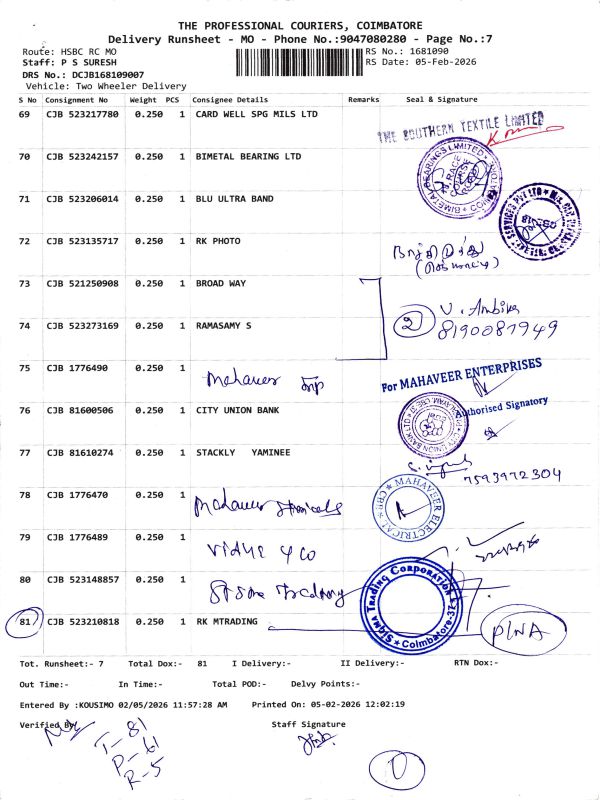 THE PROFESSIONAL COURIERS, COIMBATORE
Delivery Runsheet - MO - Phone No.:9047080280 - Page No.:7
Route: HSBC RC MO RS No.: 1681090
Staff: P S SURESH RS Date: 05-Feb-2026
DRS No.: DCJB168109007
Vehicle: Two Wheeler Delivery
S No Consignment No Weight PCS Consignee Details Remarks Seal & Signature
69 CJB 523217780 0.250 1 CARD WELL SPG MILS LTD
THE SOUTHERN TEXTILE LIMITED
70 CJB 523242157 0.250 1 BIMETAL BEARING LTD
BIMETAL BEARINGS LIMITED
71 CJB 523206014 0.250 1 BLU ULTRA BAND
72 CJB 523135717 0.250 1 RK PHOTO
73 CJB 521250908 0.250 1 BROAD WAY
2 V. Ambika
74 CJB 523273169 0.250 1 RAMASAMY S
8190087949
75 CJB 1776490 0.250 1 Mahaveer
For MAHAVEER ENTERPRISES
Authorised Signatory
76 CJB 81600506 0.250 1 CITY UNION BANK
CITY UNION BANK LTD
77 CJB 81610274 0.250 1 STACKLY YAMINEE
7593972304
78 CJB 1776470 0.250 1 Mahaveer
MAHAVEER ELECTRICAL
CBE
79 CJB 1776489 0.250 1
80 CJB 523148857 0.250 1
Sigma Trading Corporation
Coimbatore
81 CJB 523210818 0.250 1 RK MTRADING
Tot. Runsheet:- 7 Total Dox:- 81 I Delivery:- II Delivery:- RTN Dox:-
Out Time:- In Time:- Total POD:- Delvy Points:-
Entered By :KOUSIMO 02/05/2026 11:57:28 AM Printed On: 05-02-2026 12:02:19
Verified By Staff Signature
T-81
P-61
R-5